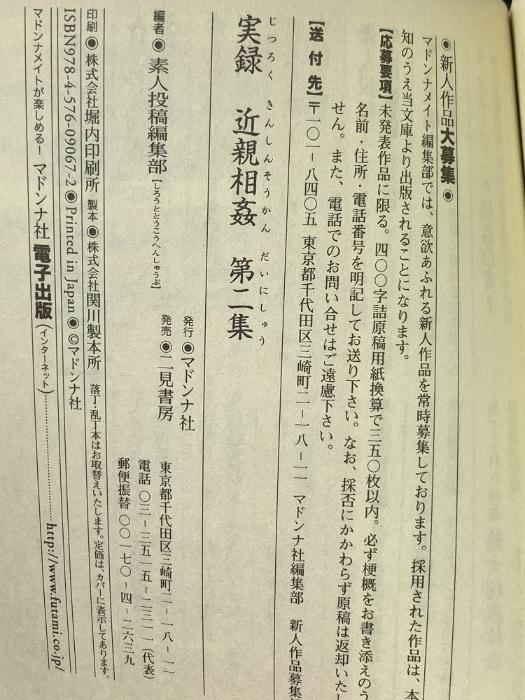 ◉新人作品大募集◉
マドンナメイト編集部では、意欲あふれる新人作品を常時募集しております。採用された作品は、本
知のうえ当文庫より出版されることになります。
【応募要項】未発表作品に限る。四〇〇字詰原稿用紙換算で三五〇枚以内。必ず梗概をお書き添えのう
名前・住所・電話番号を明記してお送り下さい。なお、採否にかかわらず原稿は返却いたし
せん。また、電話でのお問い合せはご遠慮下さい。
【送付先】〒一〇一-八四〇五 東京都千代田区三崎町二-一八-一一 マドンナ社編集部 新人作品募集
実録 近親相姦 第二集
じつろく きんしんそうかん だいにしゅう
編者◉素人投稿編集部【しろうととうこうへんしゅうぶ】
発行◉マドンナ社
発売◉二見書房
東京都千代田区三崎町二-一八-一一
電話 〇三-三五一五-二三一一(代表)
郵便振替 〇〇一七〇-四-二六三九
印刷◉株式会社堀内印刷所 製本◉株式会社関川製本所 落丁・乱丁本はお取替えいたします。定価は、カバーに表示してあります。
ISBN978-4-576-09067-2◉Printed in Japan◉©マドンナ社
マドンナメイトが楽しめる! マドンナ社 電子出版(インターネット)………http://www.futami.co.jp/